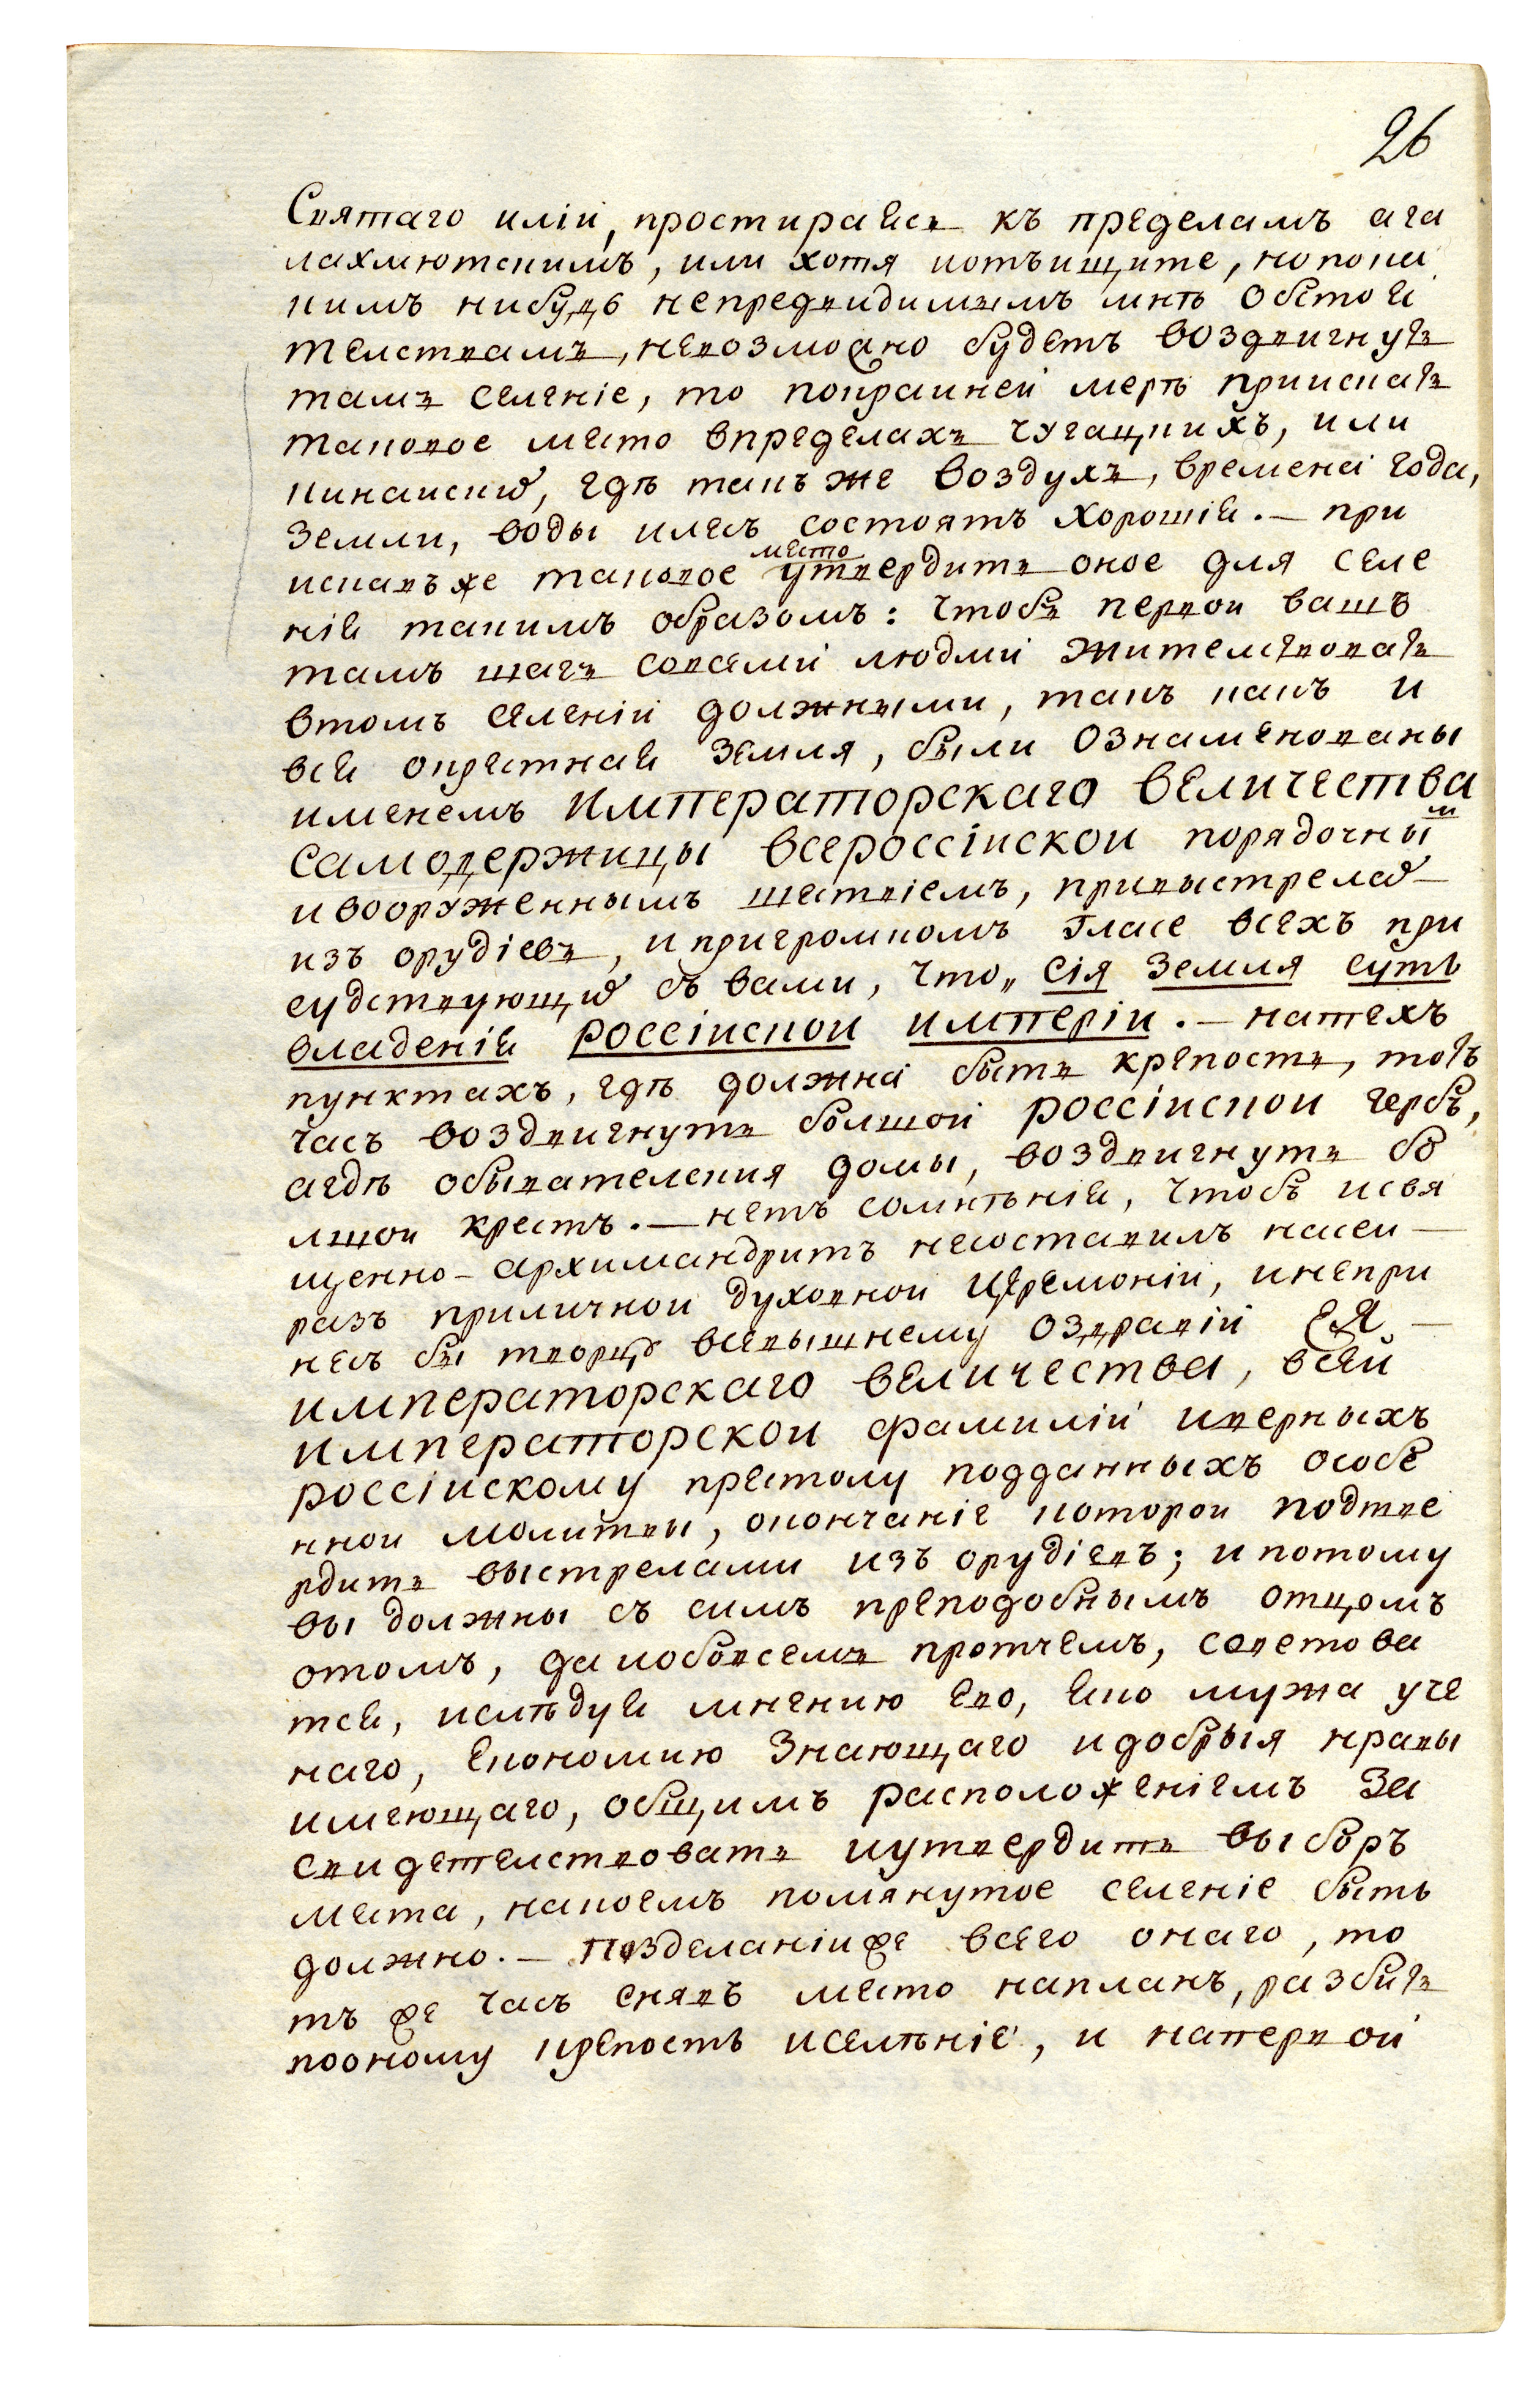 26
Святаго иліи, простираясь къ пределамъ ага
лахмютскимъ, или хотя иотъищите, но пока
кимъ нибудь непредвидимымъ мнѣ обстоя
телствамъ, невозможно будетъ воздвигнуть
тамъ селеніе, то покрайней мерѣ приискать
таковое место впределахъ чугацкихъ, или
кинайских, гдѣ также воздухъ, временаі года,
Земли, воды илесъ состоятъ хорошія. — при
искавъже таковое место утвердить оное для селе
нія такимъ образомъ: чтобъ первой вашъ
тамъ шагъ совсеми людми жителствовать
втомъ селеніи должными, такъ какъ и
вся окрестная Земля, были ознаменованы
именемъ императорскаго величества
самодержицы всероссіискои порядочным
ивооруженнымъ шествіемъ, привыстрелах
изъ орудіевъ, и пригромкомъ гласе всехъ при
судствующих съ вами, что „ сія Земля суть
владенія россіискои имперіи. — натехъ
пунктахъ, гдѣ должнаі быть крепость, тотъ
часъ воздвигнуть болшой россіискои гербъ,
агдѣ обывателския домы, воздвигнуть бо
лшои крестъ. — нетъ сомнѣнія, чтобъ исвя
щенно-архимандритъ неоставилъ насеи —
разъ приличнои духовнои Церемоніи, инепри
несъ бы творцу всевышнему оздравіи ЕЯ —
императорскаго величества, всей
императорскои фамиліи иверныхъ
россіискому престолу подданныхъ особе
ннои молитвы, окончаніе которои подтве
рдить выстрелами изъ орудіевъ; и потому
вы должны съ симъ преподобнымъ отцомъ
отомъ, да иобовсемъ протчемъ, советова
тся, ислѣдуя мнению его, яко мужа уче
наго, економию Знающаго идобрыя нравы
имеющаго, общимъ расположеніемъ За
свидетелствовать иутвердить выборъ
места, накоемъ помянутое селеніе быть
должно. — Позделаніиже всего онаго, то
тъ же часъ снявъ место напланъ, разбить
пооному крепость иселѣніе, и напервой